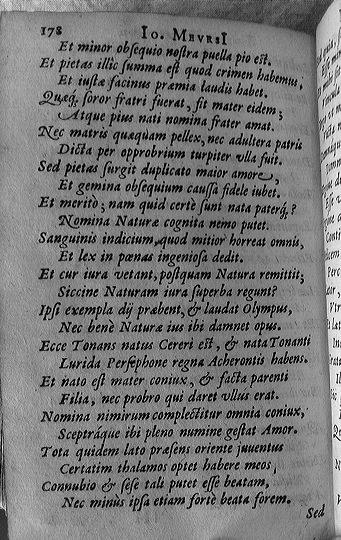 178 IO. MEVRSI
Et minor obsequio nostra puella pio est.
Et pietas illic summa est quod crimen habemus,
Et iustæ facinus præmia laudis habet.
Quæq́; soror fratri fuerat, fit mater eidem;
Atque pius nati nomina frater amat.
Nec matris quæquam pellex, nec adultera patris
Dicta per opprobrium turpiter vlla fuit.
Sed pietas surgit duplicato maior amore,
Et gemina obsequium caussa fidele iubet.
Et meritò; nam quid certè sunt nata paterq́;?
Nomina Naturæ cognita nemo putet.
Sanguinis indicium, quod mitior horreat omnis,
Et lex in pœnas ingeniosa dedit.
Et cur iura vetant, postquam Natura remittit;
Siccine Naturam iura superba regunt?
Ipsi exempla dij præbent, & laudat Olympus,
Nec benè Naturæ ius ibi damnet opus.
Ecce Tonans natus Cereri est, & nata Tonanti
Lurida Persephone regna Acherontis habens.
Et nato est mater coniux, & facta parenti
Filia, nec probro qui daret vllus erat.
Nomina nimirum complectitur omnia coniux,
Sceptráque ibi pleno numine gestat Amor.
Tota quidem lato præsens oriente iuuentus
Certatim thalamos optet habere meos,
Connubio & sese tali putet esse beatam,
Nec minùs ipsa etiam fortè beata forem.
Sed